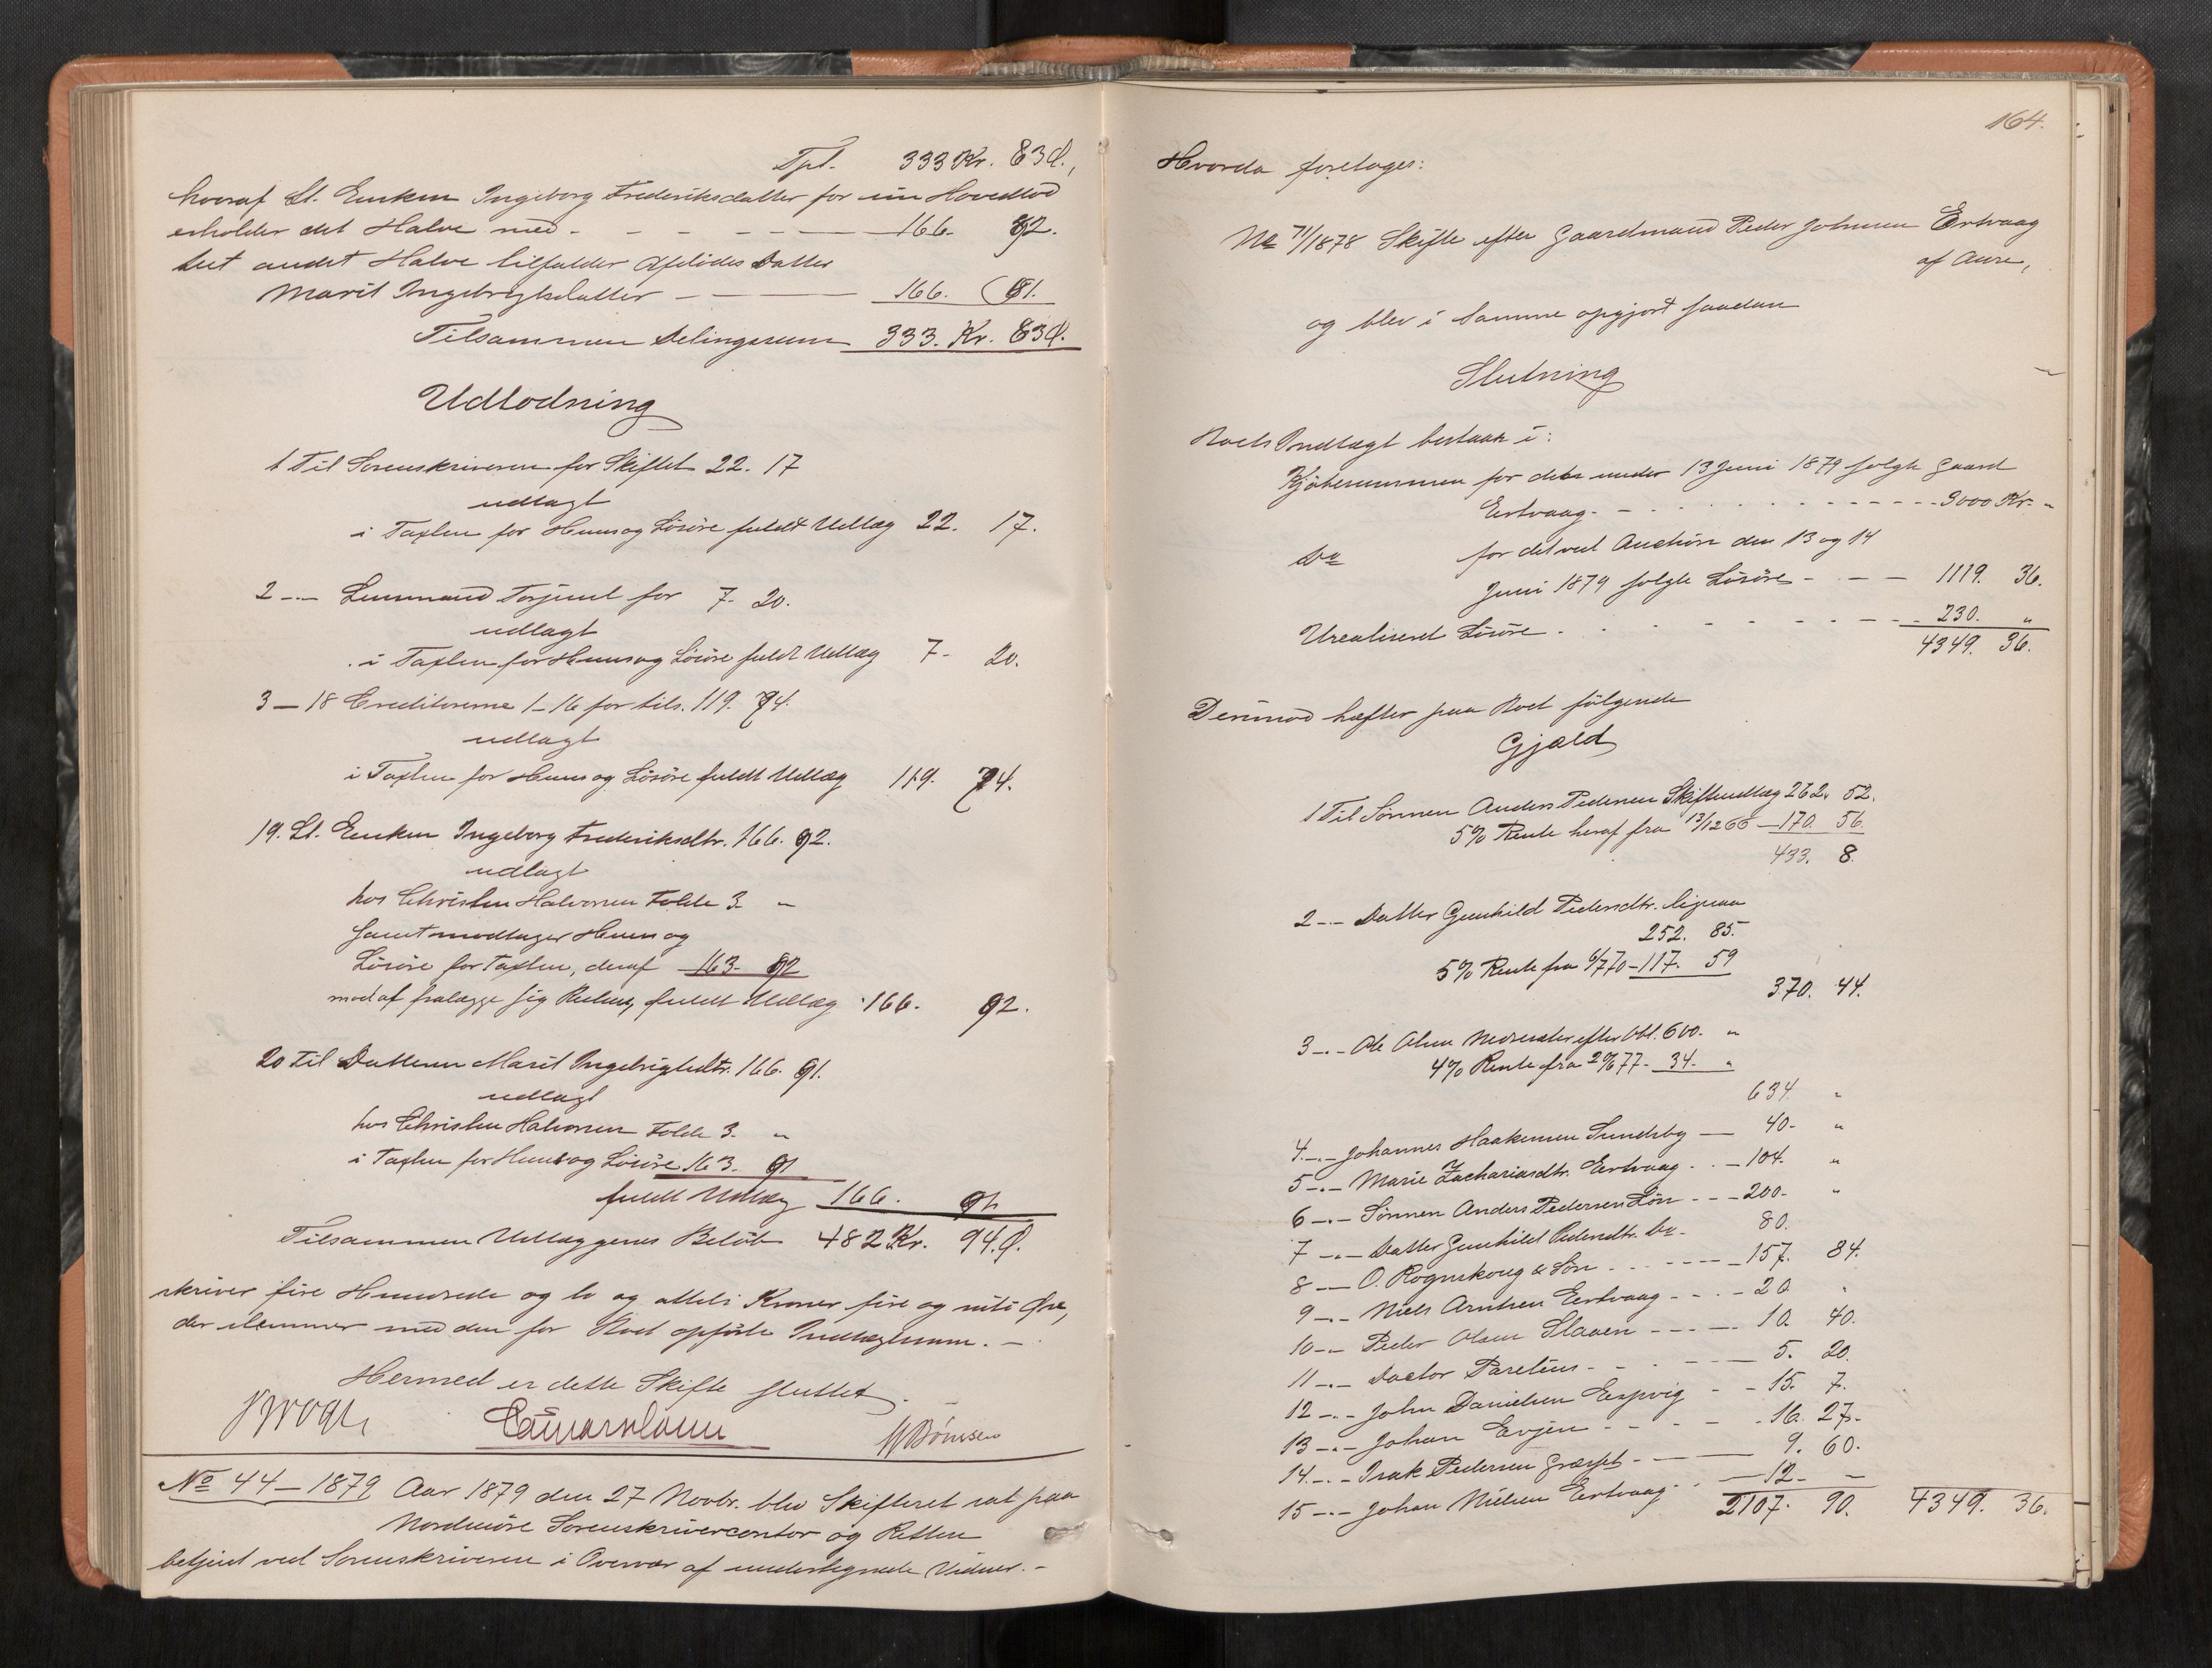 Tpt. 333 Kr. 83 Ø.,
hvoraf St. Enken Ingeborg Frederiksdatter for sin Hovedlod
erholder det Halve med - - - - 166. 92.
det andet Halve tilfalder Afdødes Datter
Marit Ingebrigtsdatter - 166. 91.
Tilsammen Delingssum 333. Kr. 83 Ø.
Udlodning
1 Til Sorenskriveren for Skiftet 22. 17
udlagt
i Taxten for Huus og Løsøre fuldt Udlæg 22. 17.
2 -.- Lensmand Torjuul for 7. 20.
udlagt
i Taxten for Huus og Løsøre fuldt Udlæg 7- 20.
3 - 18 Creditorerne 1-16 for tils. 119. 74.
udlagt
i Taxten for Huus og Løsøre fuldt Udlæg 119. 74.
19. St. Enken Ingeborg Frederiksdtr. 166. 92.
udlagt
hos Christen Halvorsen Folde 3. "
samt modtager Huus og
Løsøre for Taxten, deraf 163- 92
mod at fralægge sig Resten, fuldt Udlæg 166. 92.
20 Til Datteren Marit Ingebrigtsdtr. 166. 91.
udlagt
hos Christen Halvorsen Folde 3. "
i Taxten for Huus og Løsøre 163. 91
fuldt Udlæg 166. 91
Tilsammen Udlæggenes Beløb 482 Kr. 94. Ø.
skriver fire Hundrede og to og otteti Kroner fire og niti Øre,
der stemmer med den for Boet opførte Indtægtssum. -
Hermed er dette Skifte sluttet.
No 44 - 1879 Aar 1879 den 27 Novbr. blev Skifteret sat paa
Nordmøre Sorenskrivercontor og Retten
betjent ved Sorenskriveren i Overvær af undertegnede Vidner. -
164.
Hvorda foretoges:
No 71/1878 Skifte efter Gaardmand Peder Johnsen Ertvaag
af Aure,
og blev i Samme opgjort saadan
Slutning
Boets Indtægt bestaar i:
Kjøbesummen for den under 13 Juni 1879 solgte Gaard
Ertvaag - - - - 3000 Kr. "
Do for det ved Auction den 13 og 14
Juni 1879 solgte Løsøre - - - 1119. 36.
Urealiseret Løsøre - - - - 230. "
4349. 36.
Derimod hæfter paa Boet følgende
Gjæld
1 Til Sønnen Anders Pedersen Skifteudlæg 262. 52.
5% Rente heraf fra 13/12 66 - 170. 56.
433. 8.
2 -.- Datter Gunhild Pedersdtr. ligesaa
252. 85.
5% Rente fra 6/7 70 - 117. 59
370. 44.
3 -.- Ole Olsen efter Obl. 600. "
4% Rente fra 77 - 34. "
634. "
4 -.- Johannes Haakensen Sundsby - 40- "
5 -.- Marie Zachariasdtr. Ertvaag - 104. "
6 -.- Sønnen Anders Pedersen Løn - - - 200- "
7 -.- Datter Gunhild Pedersdtr. Do - 80.
8 -.- O. Rognskoug & Søn - - - 157. 84.
9 -.- Niels Arntsen Ertvaag - - - 20 "
10 -.- Peder Olsen Slaaen - - - 10. 40.
11 -.- Doctor Parelius - - - 5. 20.
12 -.- John Danielsen Espvig - - 15. 7.
13 -.- Johan Evjen - - - 16. 27-
14 -.- Isak Pedersen Græsset - 9. 60.
15 -.- Johan Nielsen Ertvaag - 12- -
2107. 90. 4349. 36.